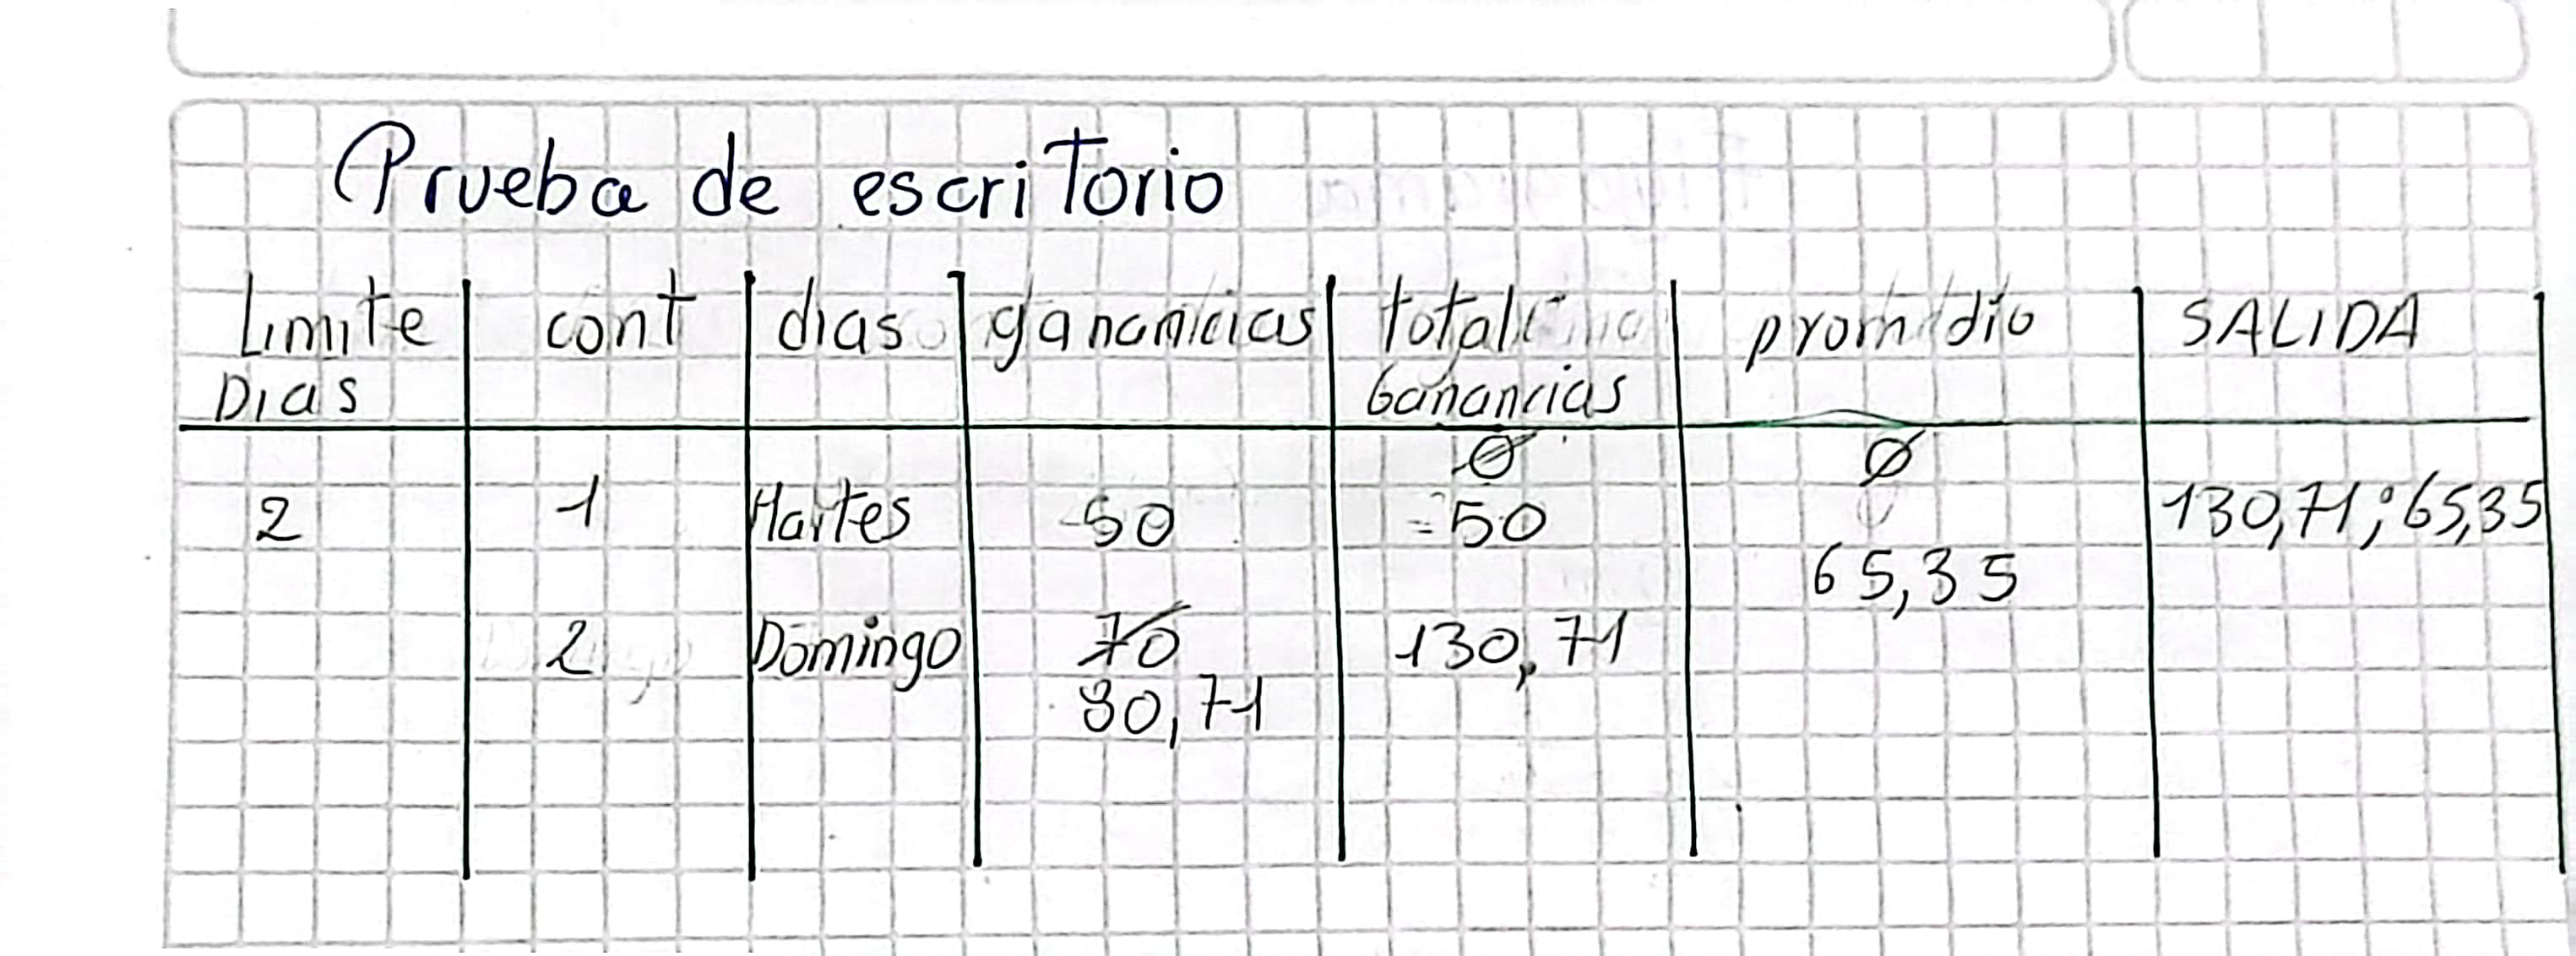 Prueba de escritorio
Limite Dias cont dias ganancias total Ganancias promedio SALIDA
0 0
2 1 Martes 50 50 130,71;65,35
65,35
2 Domingo 70 130,71
80,71